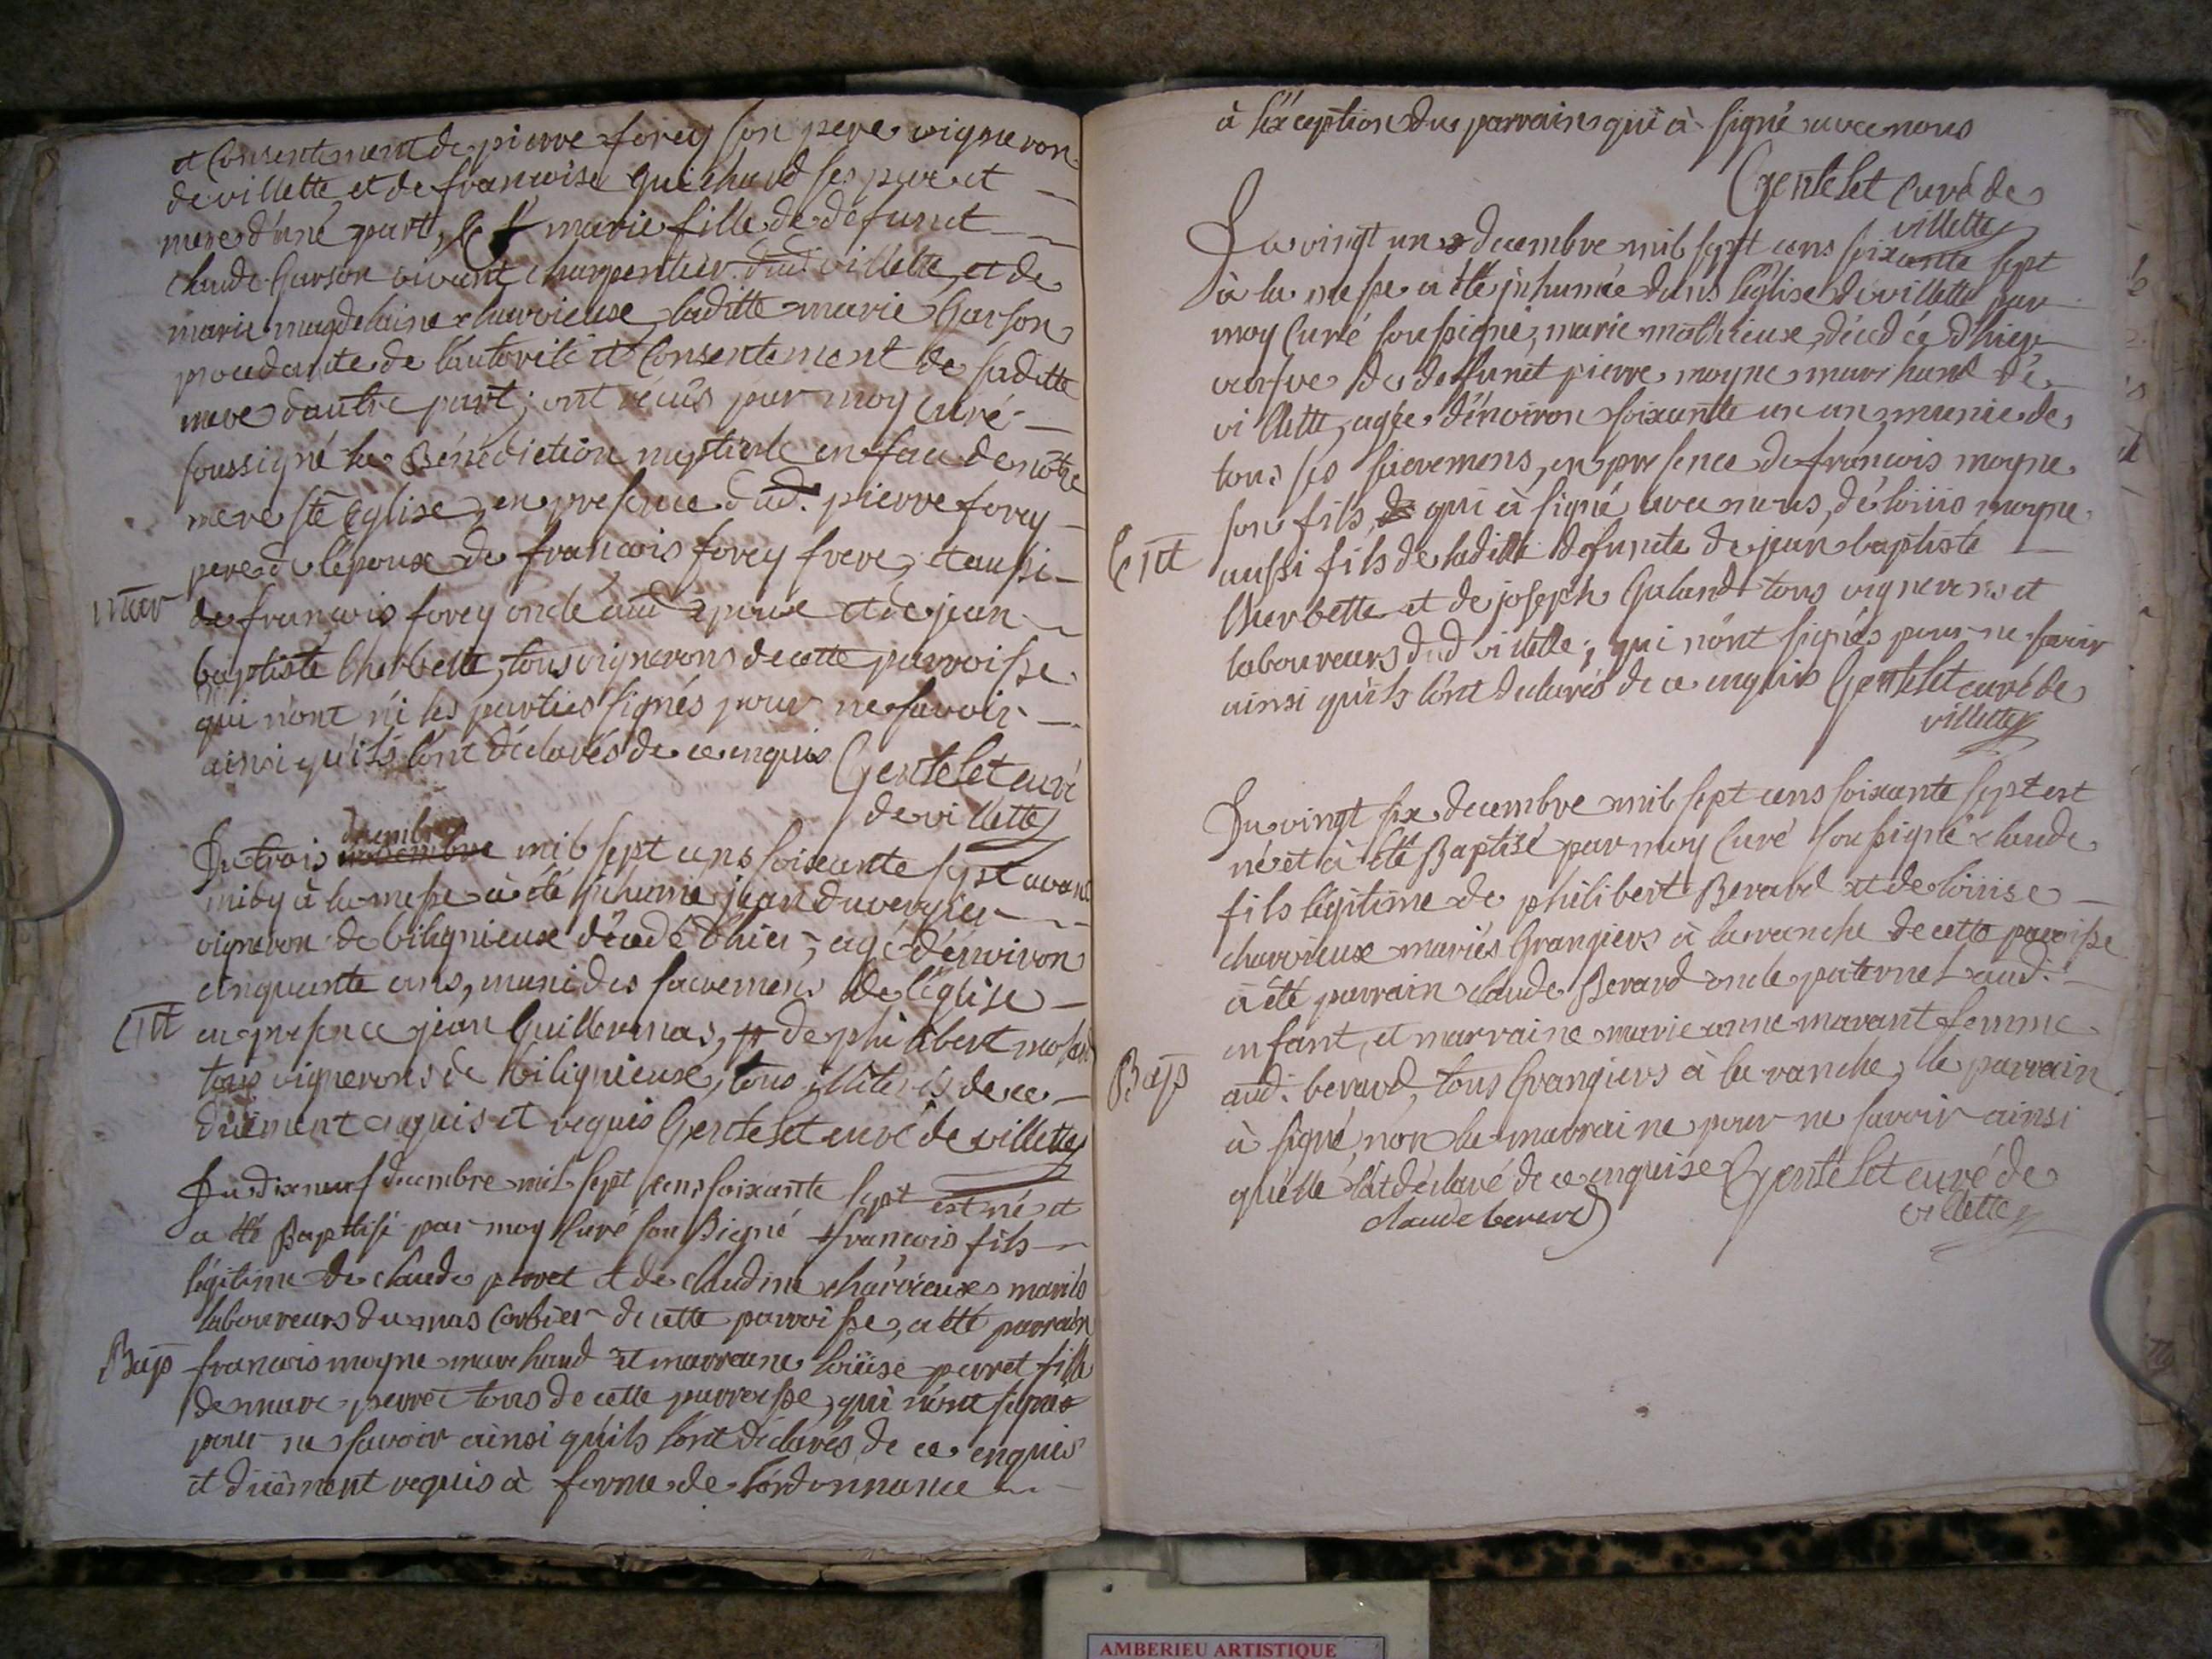 et Consentement de pierre forey son pere vigneron
de villette, et de francoise Guichard ses pere et
mere d'une part, & marie fille de defunct
claude Garson vivant charpentier dud. villette, et de
marie magdelaine charvieux, laditte marie Garson
procedante de l'autorité et Consentement de saditte
mere d'autre part; ont recûs par moy curé
soussigné la Bénédiction nuptiale en face de nôtre
mere ste Eglise, en presence dud. pierre forey
pere de l'epoux de francois forey frere, et aussi
mar
de francois forey oncle aud epoux et de jean
baptiste Cherbette, tous vignerons de cette parroisse
qui n'ont ni les parties signés pour ne savoir
ainsi qu'ils l'ont déclarés de ce enquis Gentelet curé
de villette
decembre
Du trois novembre mil sept cens soixante sept avant
midy à la messe à été inhumé jean duvergier
vigneron de bilignieux décedé d'hier, agé d'environ
cinquante ans, muni des sacremens de l'eglise
Ent
en presence jean Guillermas, de philibert
tous vignerons de bilignieux, tous illiterés de ce
düement enquis et requis Gentelet curé de villette
Du dix neuf decembre mil sept cens soixante sept est né et
a été Baptisé par moy Curé soussigné francois fils
légitime de claude perret et de claudine charvieux mariés
laboureurs du mas Corbier de cette parroisse, a été parrain
Bap
francois moyne marchand et marraine loüise perret fille
de marc perret tous de cette parroisse, qui n'ont signés
pour ne savoir ainsi qu'ils l'ont déclarés de ce enquis
et düement requis à forme de l'ordonnance
à l'éxception du parrain qui à signé avec nous
Gentelet Curé de
villette
Du vingt un decembre mil sept cens soixante sept
à la messe a été inhumée dans l'église de villette par
moy Curé soussigné, marie mathieux, décedée d'hier
veufve de defunct pierre moyne marchand de
villette, agée d'environ soixante un an munie de
tous ses sacremens, en presence de francois moyne
son fils, qui à signé avec nous, de loüis moyne
Ent
aussi fils de laditte defuncte de jean baptiste
Cherbette et de joseph Galand tous vignerons et
laboureurs dud villette; qui n'ont signés pour ne savoir
ainsi qu'ils l'ont declarés de ce enquis Gentelet curé de
villette
Du vingt six decembre mil sept cens soixante sept est
né et à été Baptisé par moy Curé soussigné claude
fils légitime de philibert Berard et de loüise
charvieux mariés Grangiers à la ranche de cette paroisse
à été parrain claude Berard oncle paternel aud.
enfant, et marraine marie anne marant femme
Bap
aud. berard, tous Grangiers à la ranche, le parrain
à signé, non la marraine pour ne savoir ainsi
qu'elle l'at déclaré de ce enquise Gentelet curé de
villette
claude berard
AMBERIEU ARTISTIQUE